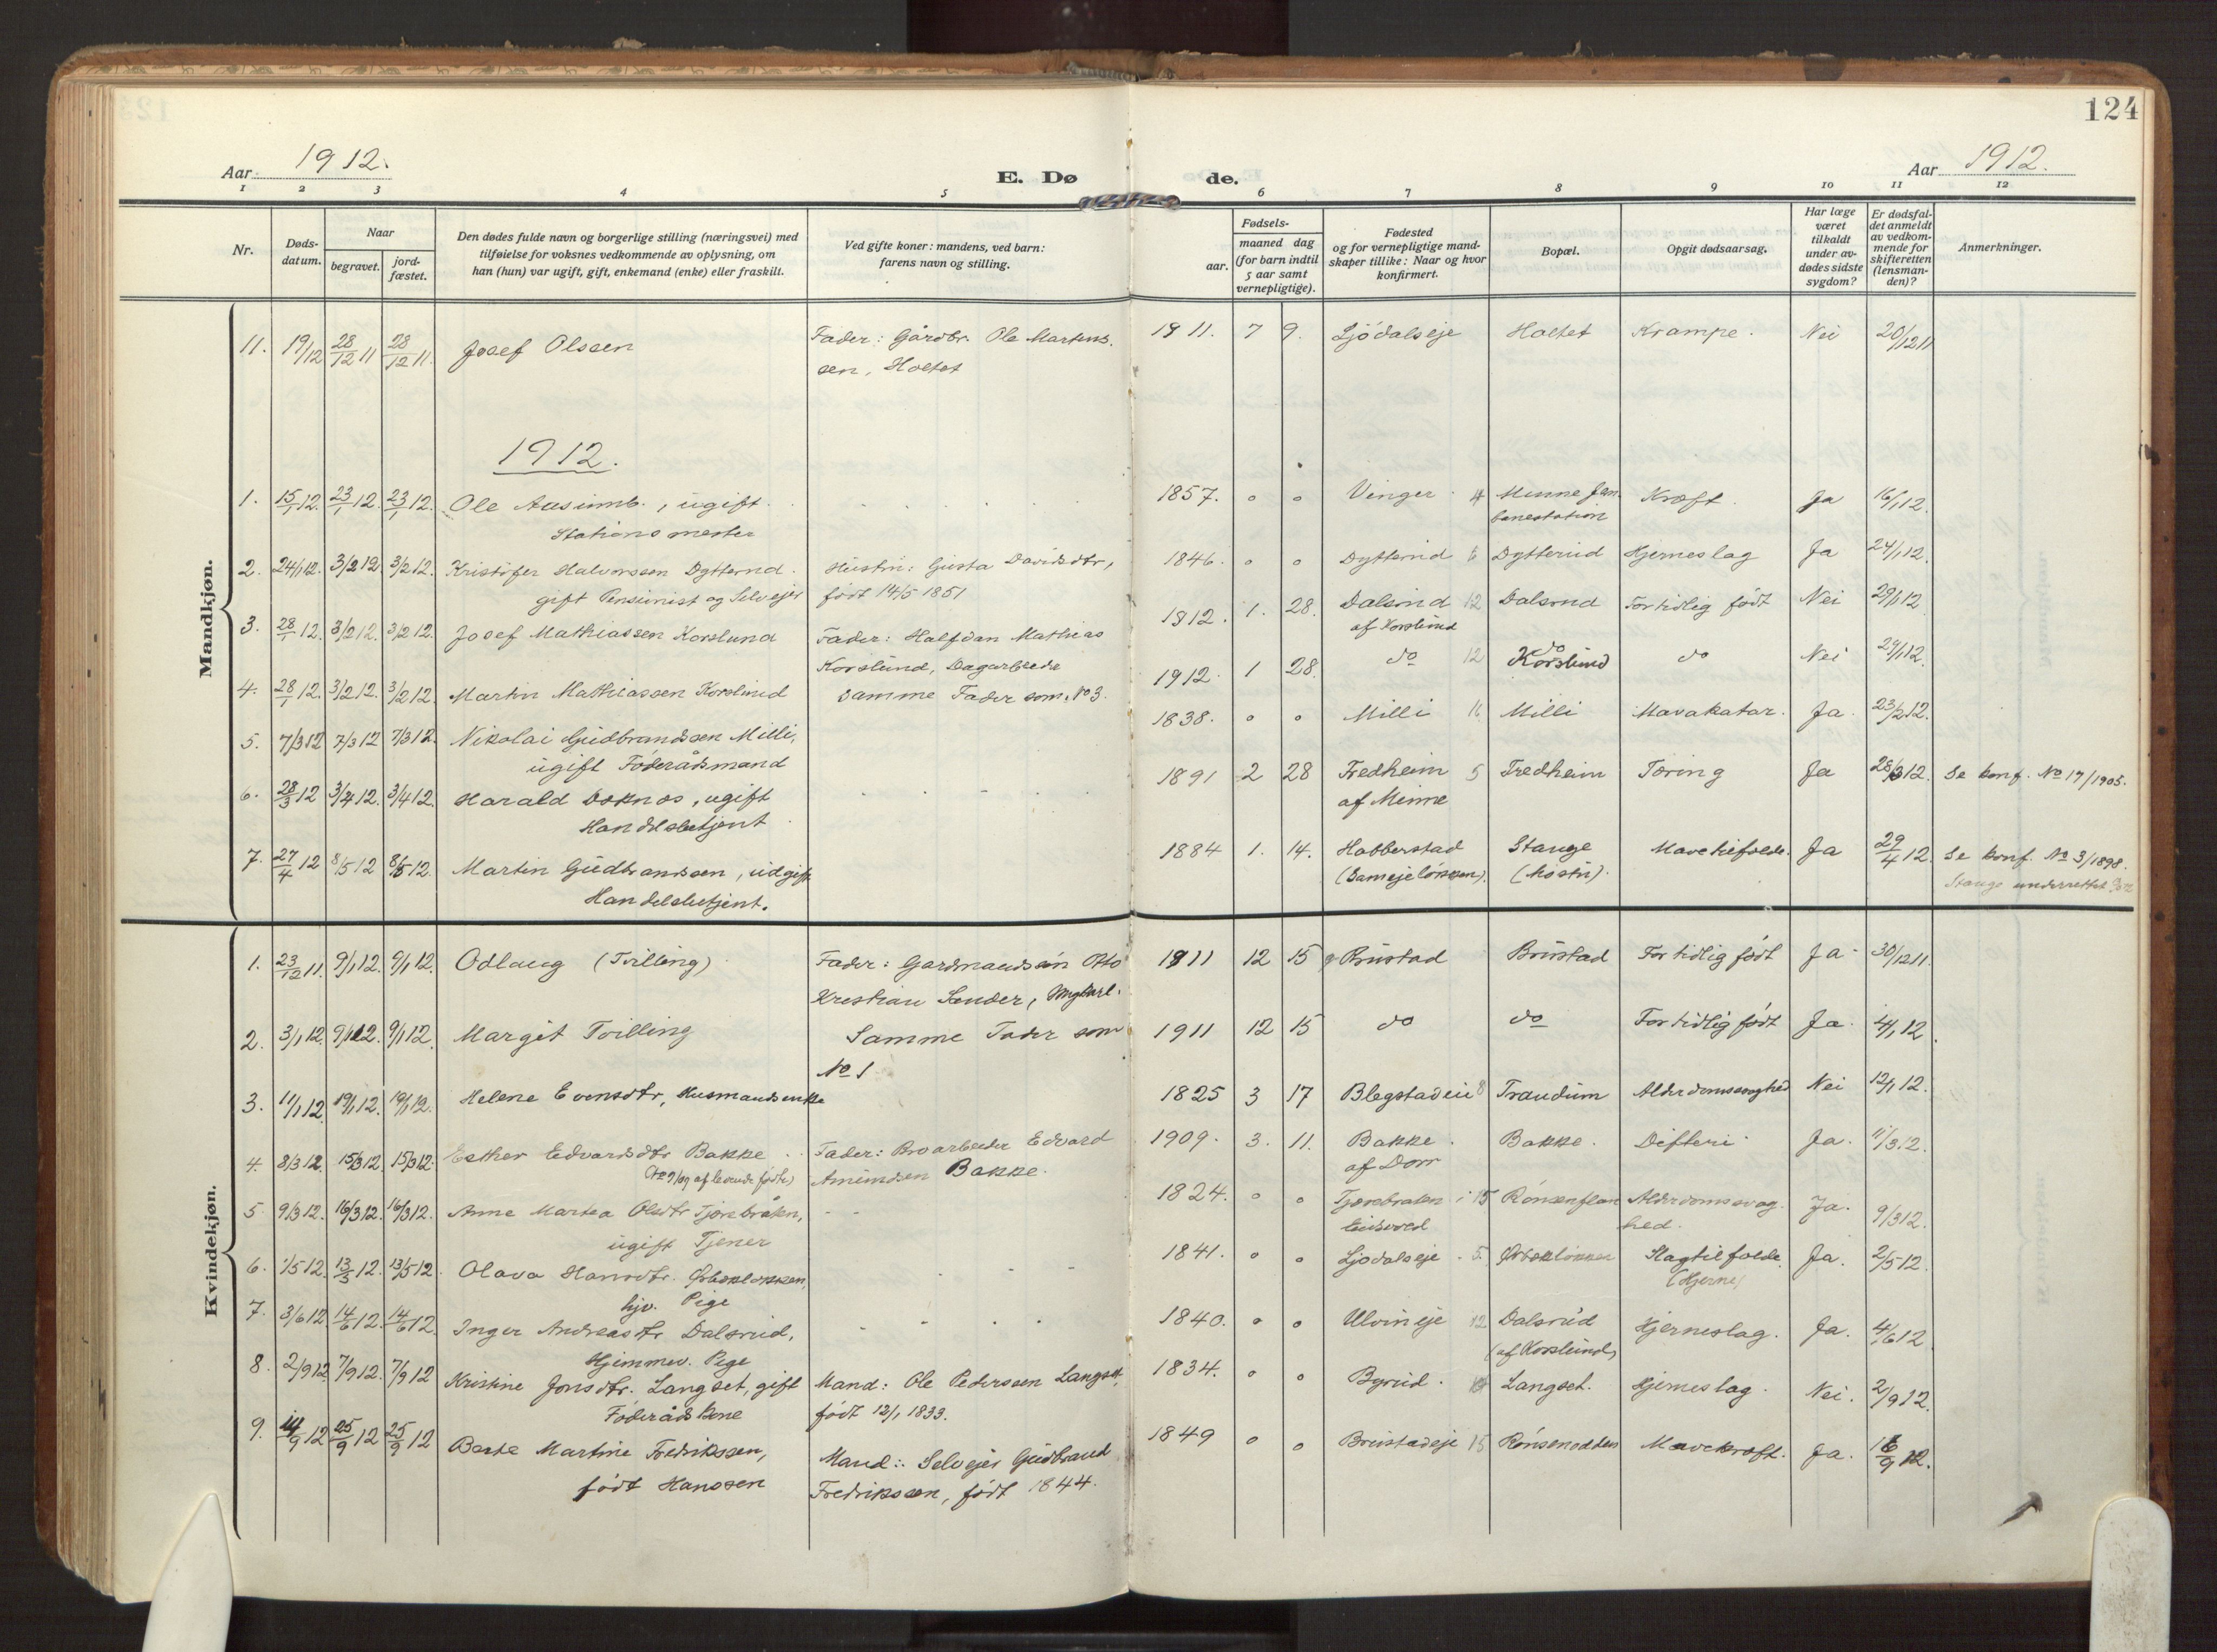 124
Aar 1912.
E. Dø
de.
Aar 1912.
1 2 3 4 5 6 7 8 9 10 11 12
Nr.
Døds-
datum.
Naar
begravet.
jord-
fæstet.
Den dødes fulde navn og borgerlige stilling (næringsvei) med
tilføielse for voksnes vedkommende av oplysning, om
han (hun) var ugift, gift, enkemand (enke) eller fraskilt.
Ved gifte koner: mandens, ved barn:
farens navn og stilling.
Fødsels-
aar.
maaned dag
(for barn indtil
5 aar samt
vernepligtige).
Fødested
og for vernepligtige mand-
skaper tillike: Naar og hvor
konfirmert.
Bopæl.
Opgit dødsaarsag.
Har læge
været
tilkaldt
under av-
dødes sidste
sygdom?
Er dødsfal-
det anmeldt
av vedkom-
mende for
skifteretten
(lensman-
den)?
Anmerkninger.
Mandkjøn.
11. 19/12 28/12 11 28/12 11. Josef Olsen Fader: Gårdbr. Ole Martins- 1911. 7 9. Ljødalseje Holtet Krampe. Nei 20/12 11
sen, Holtet
1912.
1. 15/1 12. 23/1 12. 23/1 12. Ole Aasumb., ugift 1857. o o Vinger 4 Minne Jern- Kræft. Ja 16/1 12.
Stationsmester banestation
2. 24/1 12. 3/2 12. 3/2 12. Kristofer Halvorssen Dytterud. Hustru: Gusta Davidsdtr, 1846. o o Dytterud 6 Dytterud Hjerneslag Ja 24/1 12.
gift Pensionist og Selvejer født 14/5 1851
3. 28/1 12. 3/2 12. 3/2 12. Josef Mathiassen Korslund Fader: Halfdan Mathias 1912. 1. 28. Dalsrud 12 Dalsrud For tidlig født Nei 29/1 12
Korslund, Dagarbeider af Korslund
4. 28/1 12. 3/2 12. 3/2 12. Martin Mathiassen Korslund Samme Fader som No 3. 1912. 1 28. do 12 do Korslund do Nei 29/1 12.
5. 7/3 12 7/3 12 7/3 12. Nikolai Gudbrandssen Milli, 1838. o o Milli Milli Mavekatar. Ja. 23/2 12.
ugift Føderådsmand
6. 28/3 12 3/4 12. 3/4 12. Harald Doknæs, ugift 1891 2 28 Fredheim 5 Fredheim Tæring Ja 28/3 12. Se konf. No 17/1905.
Handelsbetjent af Minne
7. 27/4 12 8/5 12 8/5 12. Martin Gudbrandssen, ugift 1884 1. 14. Habberstad Stange Mavetilfælde. Ja 29/4 12. Se konf. No 3/1898.
Handelsbetjent. Stange underrettet
Kvindekjøn.
1. 23/12 11. 9/1 12. 9/1 12. Odlaug (Tvilling) Fader: Gardmandssøn Otto 1911 12 15 Brustad Brustad For tidlig født Ja 30/12 11.
Kristian Sander, Ungkarl.
2. 3/1 12. 9/1 12. 9/1 12. Margit Tvilling Samme Fader som 1911 12 15 do do For tidlig født Ja. 4/1 12.
No 1
3. 11/1 12 19/1 12. 19/1 12. Helene Evensdtr, Husmandsenke 1825 3 17 Blegstadeie 8 Traudum Alderdomssvaghed Nei 12/1 12.
4. 8/3 12 15/3 12 15/3 12. Esther Edvardsdtr Bakke Fader: Broarbeider Edvard 1909. 3. 11. Bakke Bakke. Difteri Ja. 11/3 12.
(No 9/09 af levende fødte) Amundsen Bakke. af Dorr
5 9/3 12. 16/3 12. 16/3 12. Anne Martea Olsdtr Tjærebråten, 1824. o o Tjærebraten i 15 Rønsenflan Alderdomssvag- Ja. 9/3 12.
ugift Tjener Eidsvold hed.
6. 1/5 12. 13/5 12. 13/5 12. Olava Hansdtr. Ørbækløkken, 1841. o o Ljødalseje 5. Ørbækløkken Slagtilfælde. Ja. 2/5 12.
hjv. Pige (Hjerne)
7. 3/6 12. 14/6 12. 14/6 12. Inger Andreasdtr Dalsrud, 1840. o o Ulvineje 12 Dalsrud Hjerneslag. Ja. 4/6 12
Hjemmev. Pige (af Korslund)
8. 2/9 12. 7/9 12. 7/9 12 Kristine Jonsdtr. Langset, gift Mand: Ole Pederssen Langset, 1834. o o Byrud Langset. Hjerneslag. Nei. 2/9 12.
Føderådskone født 12/1 1833.
9. 14/9 12 25/9 12 25/9 12 Berte Martine Fredrikssen, Mand: Selvejer Gudbrand 1849 o o Brustadeje 15 Rønsenodden Mavekræft. Ja. 16/9 12.
født Hanssen Fredrikssen, født 1844.